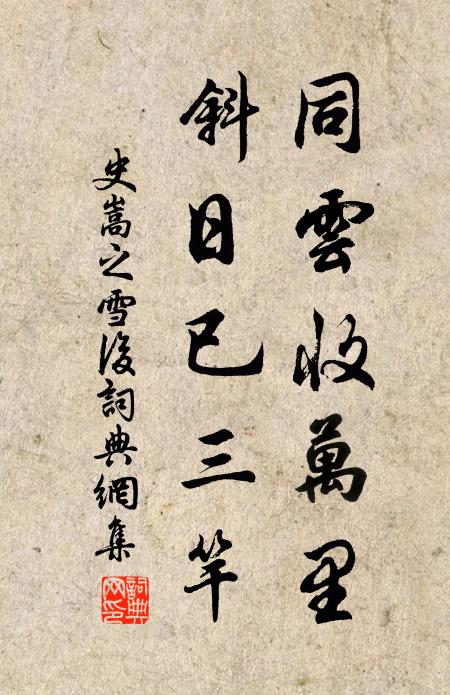 同雲收萬里
斜日已三竿
史嵩之雪後詞典網集
詞典網印